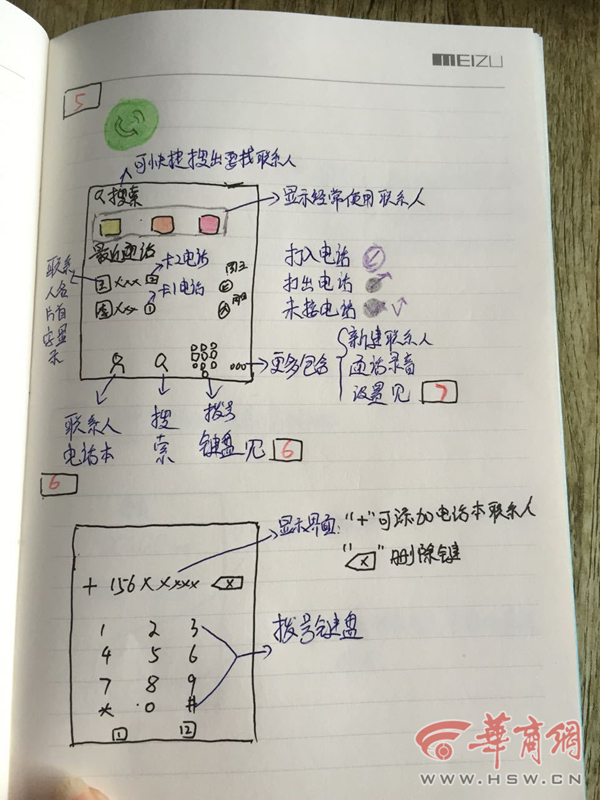 MEIZU
5
可快捷搜出要找联系人
搜索
显示经常使用联系人
最近通话
联系
人名
片首
字显
示
xxx 2
卡2电话
xx 1
卡1电话
打入电话
打出电话
未接电话
更多包含
新建联系人
通话录音
设置见 7
联系人
电话本
搜
索
拨号
键盘见 6
6
显示界面:"+"可添加电话本联系人
"x"删除键
+ 156xxxxxx x
1 2 3
4 5 6
7 8 9
* 0 #
拨号键盘
1 2
华商网
WWW.HSW.CN